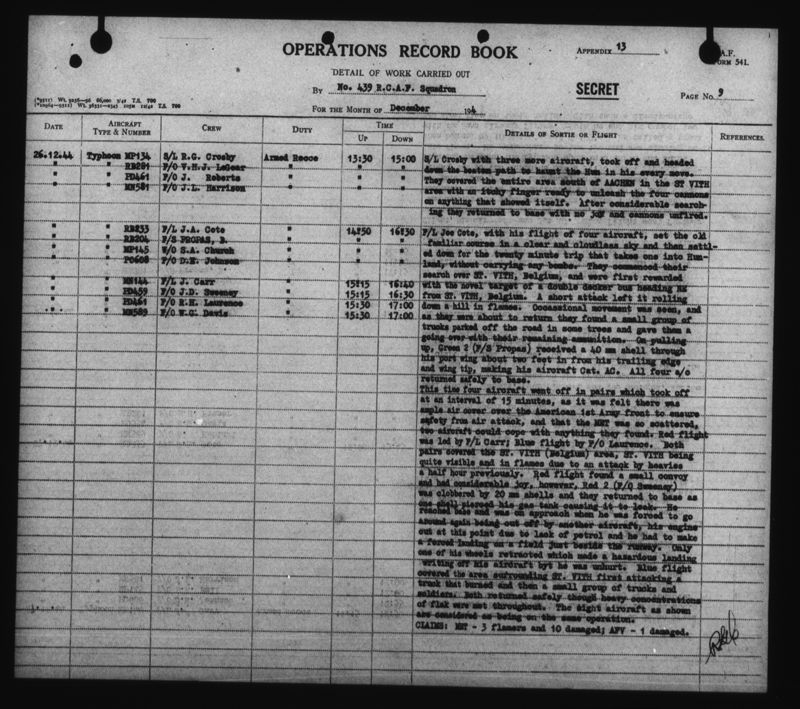 OPERATIONS RECORD BOOK
APPENDIX 13
A.F.
FORM 541.
DETAIL OF WORK CARRIED OUT
By No. 439 R.C.A.F. Squadron
SECRET
PAGE No. 9
FOR THE MONTH OF December 194
DATE AIRCRAFT TYPE & NUMBER CREW DUTY TIME UP DOWN DETAILS OF SORTIE OR FLIGHT REFERENCES.
26.12.44 Typhoon MP134 S/L R.G. Crosby Armed Recce 13:30 15:00
" " RB281 F/O V.H.J. LeGear " " "
" " PD461 F/O J. Roberts " " "
" " MN581 F/O J.L. Harrison " " "
S/L Crosby with three more aircraft, took off and headed
down the beaten path to haunt the Hun in his every move.
They covered the entire area south of AACHEN in the ST VITH
area with an itchy finger ready to unleash the four cannons
on anything that showed itself. After considerable search-
ing they returned to base with no joy and cannons unfired.
" " RB233 F/L J.A. Cote " 14:50 16:30
" " RB204 F/S PROPAS, B. " " "
" " MP145 W/O S.A. Church " " "
" " F/O D.E. Johnson " " "
" " MN144 F/L J. Carr " 15:15 16:40
" " PD459 F/O J.D. Sweeney " 15:15 16:30
" " PD461 F/O R.H. Laurence " 15:30 17:00
" " MN589 F/O W.G. Davis " 15:30 17:00
F/L Joe Cote, with his flight of four aircraft, set the old
familiar course in a clear and cloudless sky and then settl-
ed down for the twenty minute trip that takes one into Hun-
land, without carrying any bombs. They commenced their
search over ST. VITH, Belgium, and were first rewarded
with the novel target of a double decker bus heading NE
from ST. VITH, Belgium. A short attack left it rolling
down a hill in flames. Occassional movement was seen, and
as they were about to return they found a small group of
trucks parked off the road in some trees and gave them a
going over with their remaining ammunition. On pulling
up, Green 2 (F/S Propas) received a 40 mm shell through
his port wing about two feet in from his trailing edge
and wing tip, making his aircraft Cat. AC. All four a/c
returned safely to base.
This time four aircraft went off in pairs which took off
at an interval of 15 minutes, as it was felt there was
ample air cover over the American 1st Army front to ensure
safety from air attack, and that the MET was so scattered,
two aircraft could cope with anything they found. Red flight
was led by F/L Carr; Blue flight by F/O Laurence. Both
pairs covered the ST. VITH (Belgium) area, ST. VITH being
quite visible and in flames due to an attack by heavies
a half hour previously. Red flight found a small convoy
and had considerable joy, however, Red 2 (F/O Sweeney)
was clobbered by 20 mm shells and they returned to base as
one shell pierced his gas tank causing it to leak. He
reached base and was on approach when he was forced to go
around again being cut off by another aircraft, his engine
cut at this point due to lack of petrol and he had to make
a forced landing on a field just beside the runway. Only
one of his wheels retracted which made a hazardous landing
writing off his aircraft byt he was unhurt. Blue flight
covered the area surrounding ST. VITH first attacking a
truck that burned and then a small group of trucks and
soldiers. Both returned safely though heavy concentrations
of flak were met throughout. The eight aircraft as shown
are considered as being on the same operation.
CLAIMS: MET - 3 flamers and 10 damaged; AFV - 1 damaged.